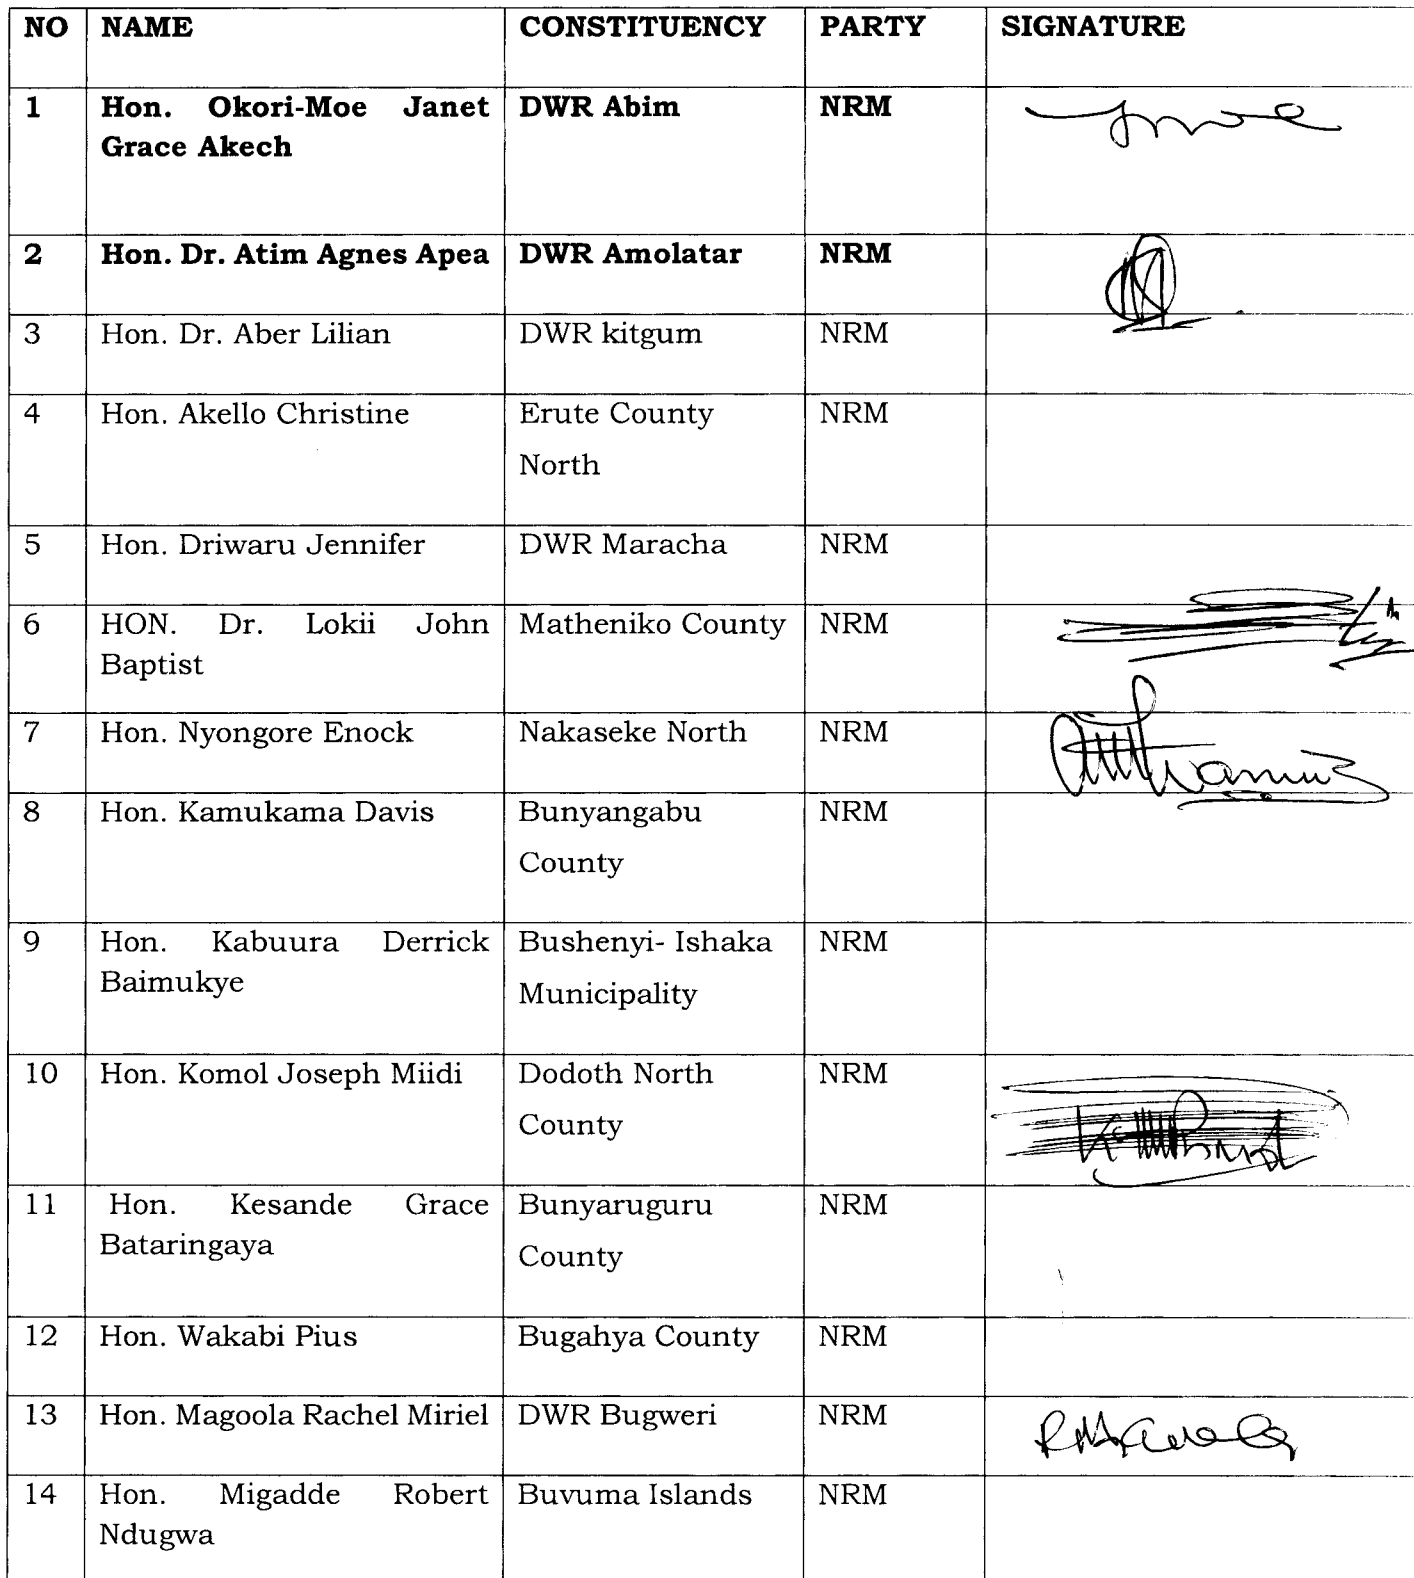 NO NAME CONSTITUENCY PARTY SIGNATURE
1 Hon. Okori-Moe Janet DWR Abim NRM
Grace Akech
2 Hon. Dr. Atim Agnes Apea DWR Amolatar NRM
3 Hon. Dr. Aber Lilian DWR kitgum NRM
4 Hon. Akello Christine Erute County NRM
North
5 Hon. Driwaru Jennifer DWR Maracha NRM
6 HON. Dr. Lokii John Matheniko County NRM
Baptist
7 Hon. Nyongore Enock Nakaseke North NRM
8 Hon. Kamukama Davis Bunyangabu NRM
County
9 Hon. Kabuura Derrick Bushenyi- Ishaka NRM
Baimukye Municipality
10 Hon. Komol Joseph Miidi Dodoth North NRM
County
11 Hon. Kesande Grace Bunyaruguru NRM
Bataringaya County
12 Hon. Wakabi Pius Bugahya County NRM
13 Hon. Magoola Rachel Miriel DWR Bugweri NRM
14 Hon. Migadde Robert Buvuma Islands NRM
Ndugwa